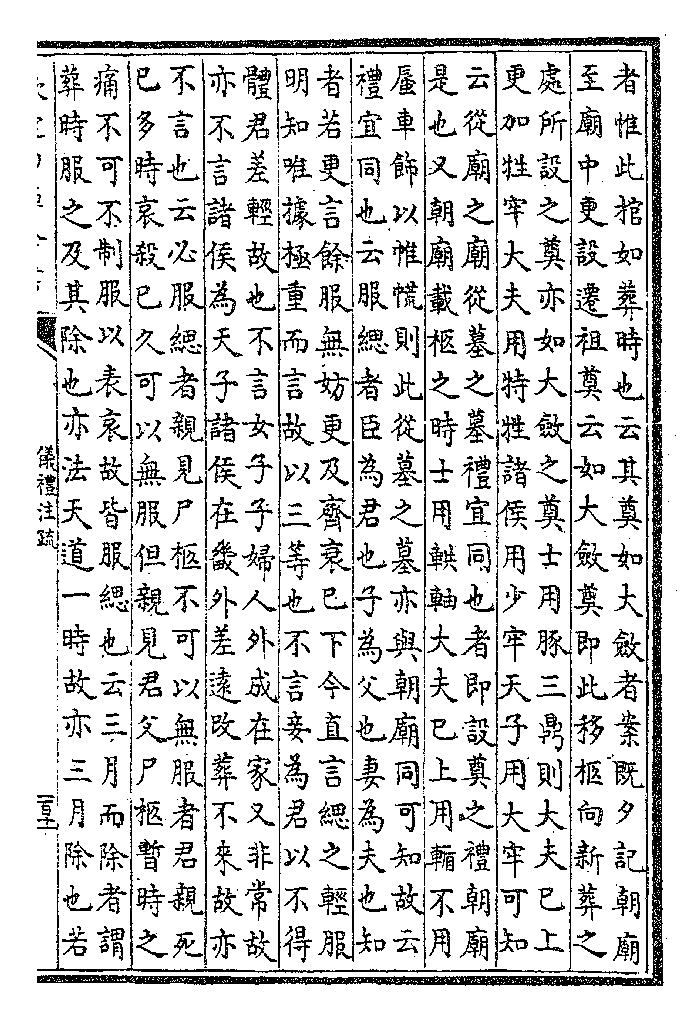 者惟此棺如葬時也云其奠如大斂者案既夕記朝廟
至廟中更設遷祖奠云如大斂奠即此移柩向新葬之
處所設之奠亦如大斂之奠士用豚三鼎則大夫已上
更加牲牢大夫用特牲諸侯用少牢天子用大牢可知
云從廟之廟從墓之墓禮宜同也者即設奠之禮朝廟
是也又朝廟載柩之時士用輁軸大夫已上用輴不用
蜃車飾以帷慌則此從墓之墓亦與朝廟同可知故云
禮宜同也云服緦者臣為君也子為父也妻為夫也知
者若更言餘服無妨更及齊衰已下今直言緦之輕服
明知唯據極重而言故以三等也不言妾為君以不得
體君差輕故也不言女子子婦人外成在家又非常故
亦不言諸侯為天子諸侯在畿外差遠改葬不來故亦
不言也云必服緦者親見尸柩不可以無服者君親死
已多時哀殺已久可以無服但親見君父尸柩暫時之
痛不可不制服以表哀故皆服緦也云三月而除者謂
葬時服之及其除也亦法天道一時故亦三月除也若
儀禮注疏